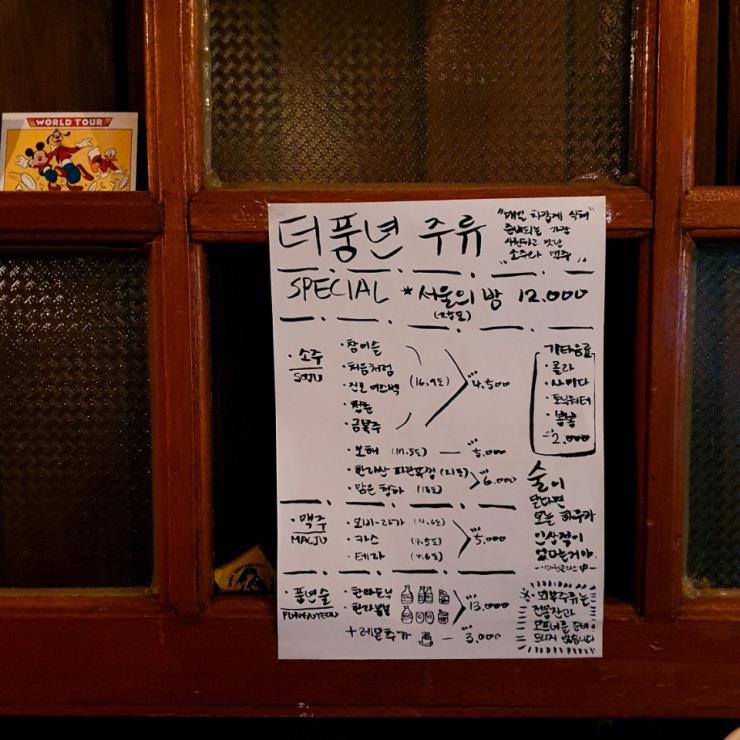 WORLD TOUR
더풍년 주류
"매일 차갑게 식혀
준비되는 가장
시원하고 맛난
소주와 맥주"
SPECIAL *서울의 밤 12.000
(25도)
· 소주
SOJU
· 참이슬
· 처음처럼
· 진로 이즈백
(16.9도)
4.500
· 참
· 금복주
· 보해 (17.5도) — 5.000
· 한라산 (21도)
· 맑은 청하 (13도)
6.000
기타음료
· 콜라
· 사이다
· 토닉워터
· 봉봉
2.000
· 맥주
MAGJU
· 카스 (4.5도)
· 테라 (4.6도)
5.000
술이
달다면
오늘 하루가
인상적이
었다는거야.
· 풍년술
PUNGNYEON
· 한라토닉
· 한라봉봉
13.000
+ 레몬추가 — 3.000
외부주류는
전용잔과
오프너를 준비해
드리지 않습니다